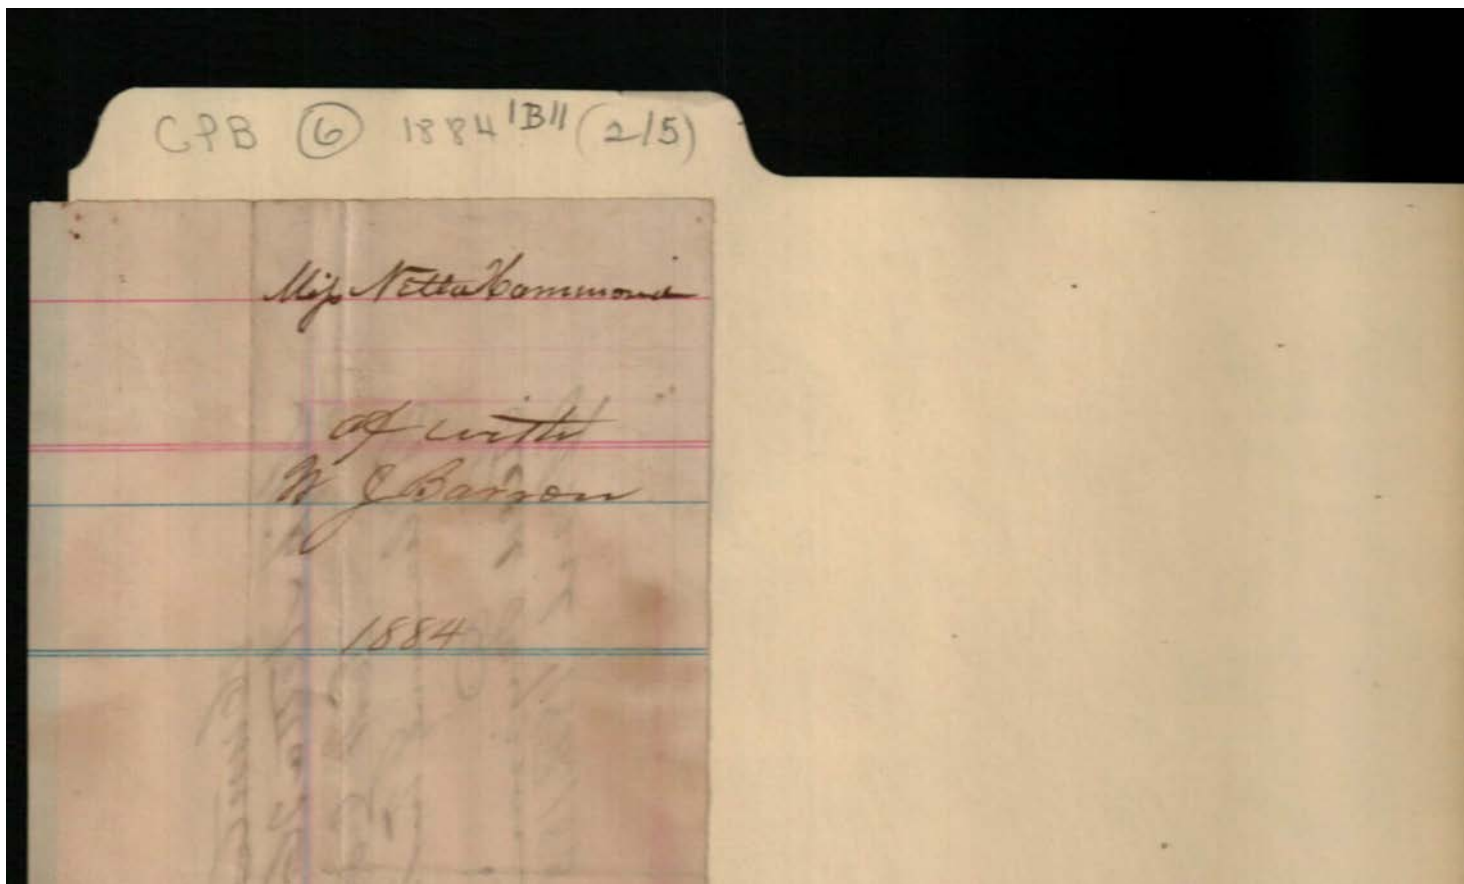 CPB 6 1884 1B11 (2/5)
Miss Netta Hammond
a/c with
W J Barron
1884